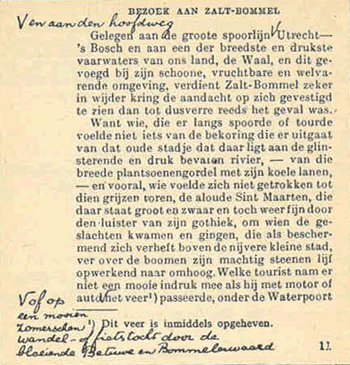 BEZOEK AAN ZALT-BOMMEL
V en aan den hoofdweg
Gelegen aan de groote spoorlijn V Utrecht—
's Bosch en aan een der breedste en drukste
vaarwaters van ons land, de Waal, en dit ge-
voegd bij zijn schoone, vruchtbare en welva-
rende omgeving, verdient Zalt-Bommel zeker
in wijder kring de aandacht op zich gevestigd
te zien dan tot dusverre reeds het geval was.
Want wie, die er langs spoorde of tourde
voelde niet iets van de bekoring die er uitgaat
van dat oude stadje dat daar ligt aan de glin-
sterende en druk bevaren rivier, — van die
breede plantsoenengordel met zijn koele lanen,
— en vooral, wie voelde zich niet getrokken tot
dien grijzen toren, de aloude Sint Maarten, die
daar staat groot en zwaar en toch weer fijn door
den luister van zijn gothiek, om wien de ge-
slachten kwamen en gingen, die als bescher-
mend zich verheft boven de nijvere kleine stad,
ver over de boomen zijn machtig steenen lijf
opwerkend naar omhoog. Welke tourist nam er
niet een mooie indruk mee als hij met motor of
auto het veer¹) passeerde, onder de Waterpoort
V of op
een mooien
zomerschen
wandel- of fietstocht door de
bloeiende Betuwe en Bommelerwaard
¹) Dit veer is inmiddels opgeheven.
11